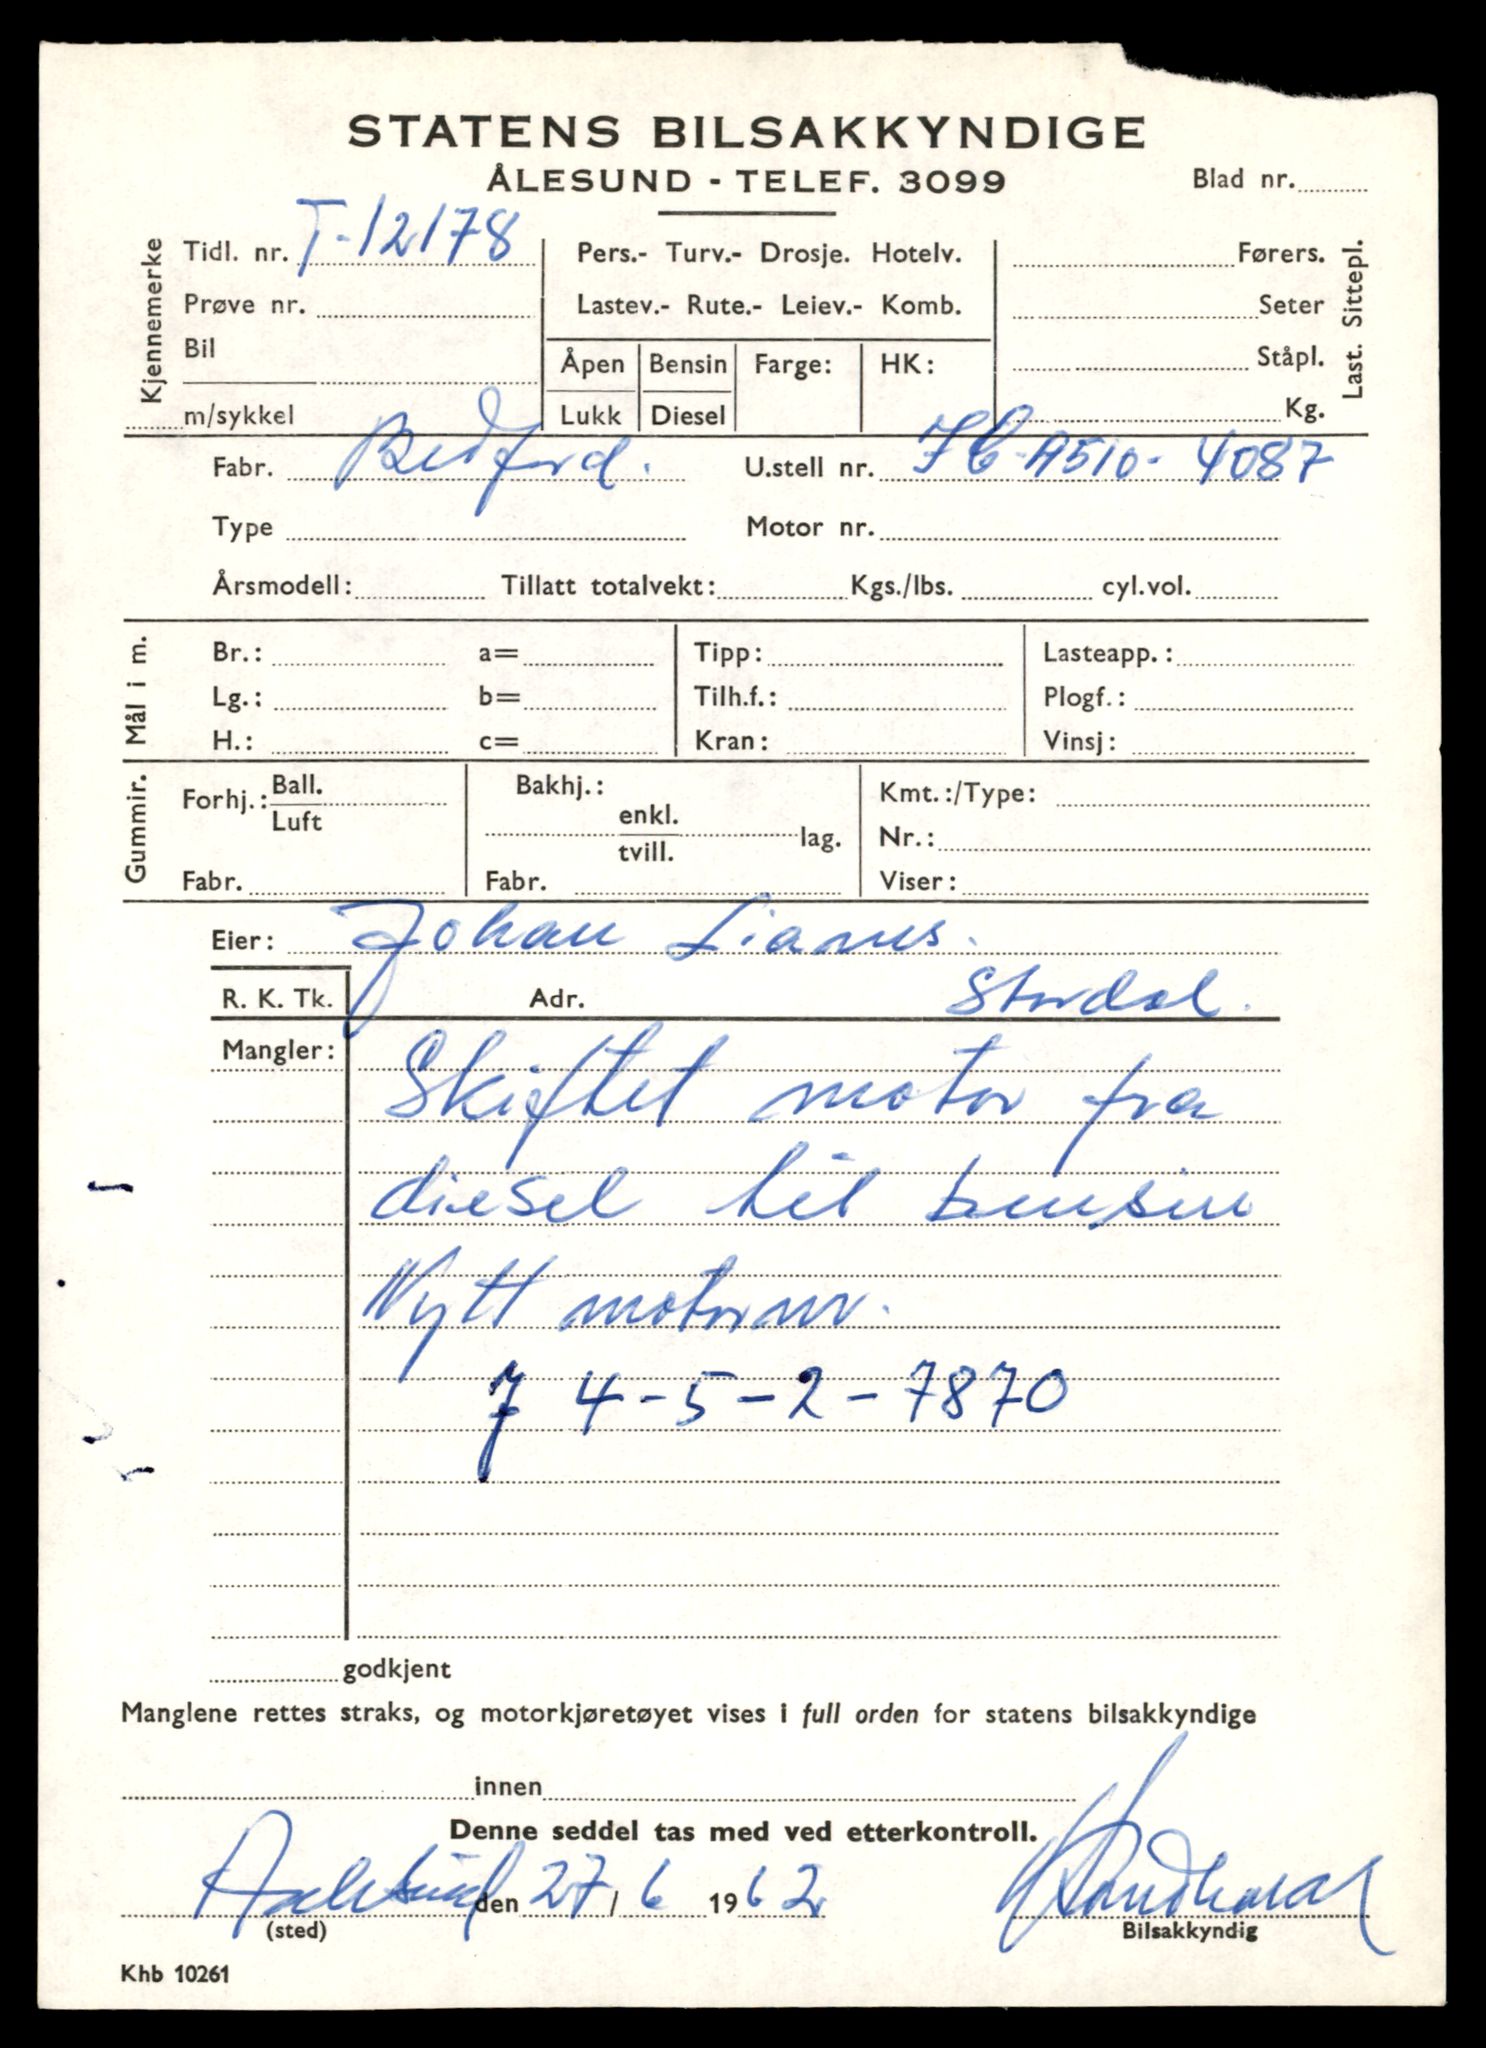 STATENS BILSAKKYNDIGE
ÅLESUND - TELEF. 3099
Blad nr.
Kjennemerke
Tidl. nr. T-12178
Prøve nr.
Bil
m/sykkel
Pers.- Turv.- Drosje. Hotelv.
Lastev.- Rute.- Leiev.- Komb.
Åpen
Lukk
Bensin
Diesel
Farge:
HK:
Førers.
Seter
Ståpl.
Kg.
Last. Sittepl.
Fabr. Bedford. U.stell nr. A510-4087
Type Motor nr.
Årsmodell: Tillatt totalvekt: Kgs./lbs. cyl.vol.
Mål i m.
Br.: a= Tipp: Lasteapp.:
Lg.: b= Tilh.f.: Plogf.:
H.: c= Kran: Vinsj:
Gummir.
Forhj.: Ball.
Luft
Fabr.
Bakhj.:
enkl.
tvill. lag.
Fabr.
Kmt.:/Type:
Nr.:
Viser:
Eier: Johan
R. K. Tk. Adr. Stordal.
Mangler:
Skiftet motor fra
diesel til bensin
Nytt motornr.
J 4-5-2-7870
godkjent
Manglene rettes straks, og motorkjøretøyet vises i full orden for statens bilsakkyndige
innen
Denne seddel tas med ved etterkontroll.
Aalesund den 27/6 1962
(sted)
Bilsakkyndig
Khb 10261